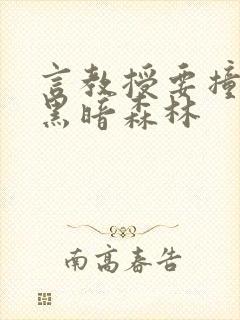 言教授要撞
黑暗森林
南高春告